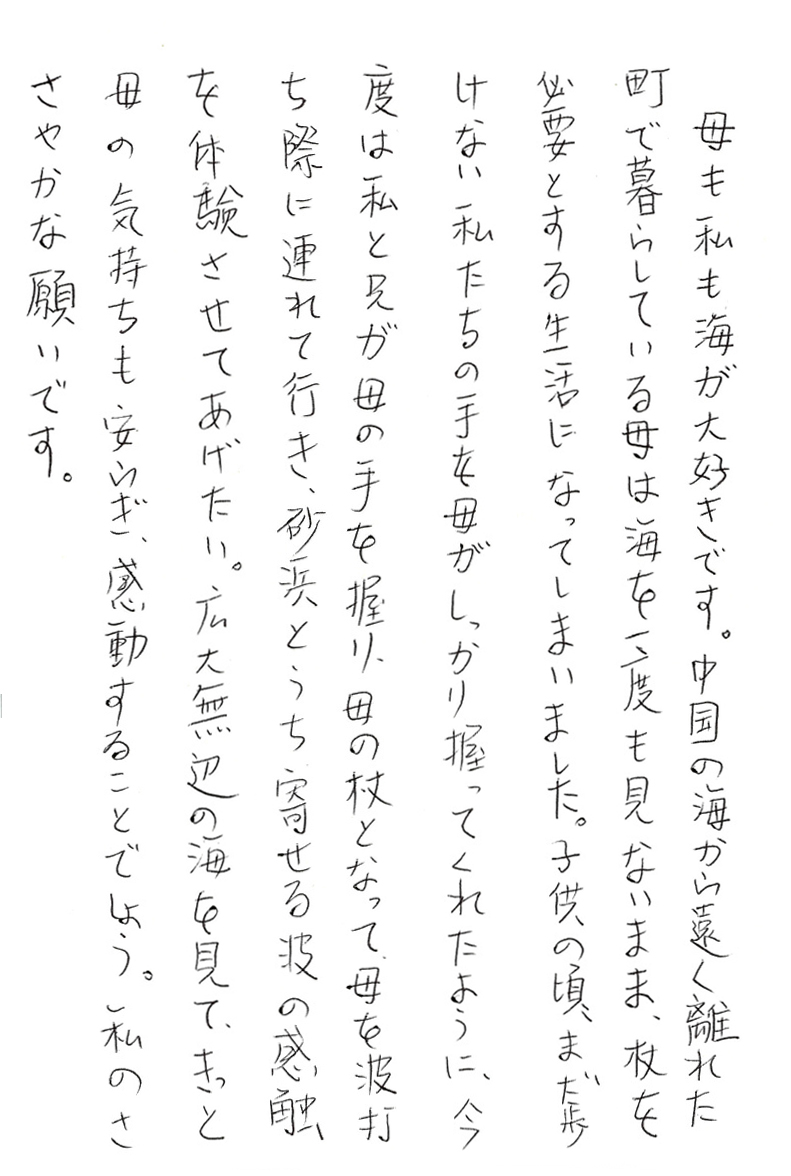 母も私も海が大好きです。中国の海から遠く離れた
町で暮らしている母は海を一度も見ないまま、杖を
必要とする生活になってしまいました。子供の頃、まだ歩
けない私たちの手を母がしっかり握ってくれたように、今
度は私と兄が母の手を握り、母の杖となって、母を波打
ち際に連れて行き、砂浜とうち寄せる波の感触、
を体験させてあげたい。広大無辺の海を見て、きっと
母の気持ちも安らぎ、感動することでしょう。私のさ
さやかな願いです。